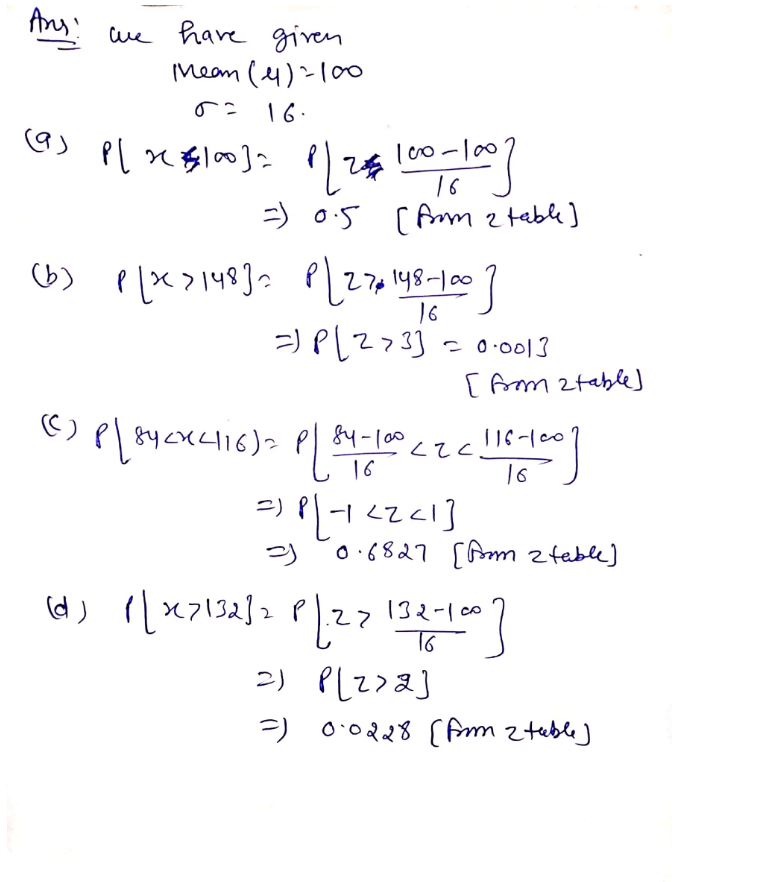 Ans: we have given
Mean (μ) = 100
σ = 16.
(a) P[x ≤ 100] = P[z ≤ (100-100)/16]
=) 0.5 [from z table]
(b) P[x > 148] = P[z > (148-100)/16]
=) P[z > 3] = 0.0013
[from z table]
(c) P[84<x<116) = P[(84-100)/16 < z < (116-100)/16]
=) P[-1 < z < 1]
=) 0.6827 [from z table]
(d) P[x>132] = P[z > (132-100)/16]
=) P[z > 2]
=) 0.0228 [from z table]